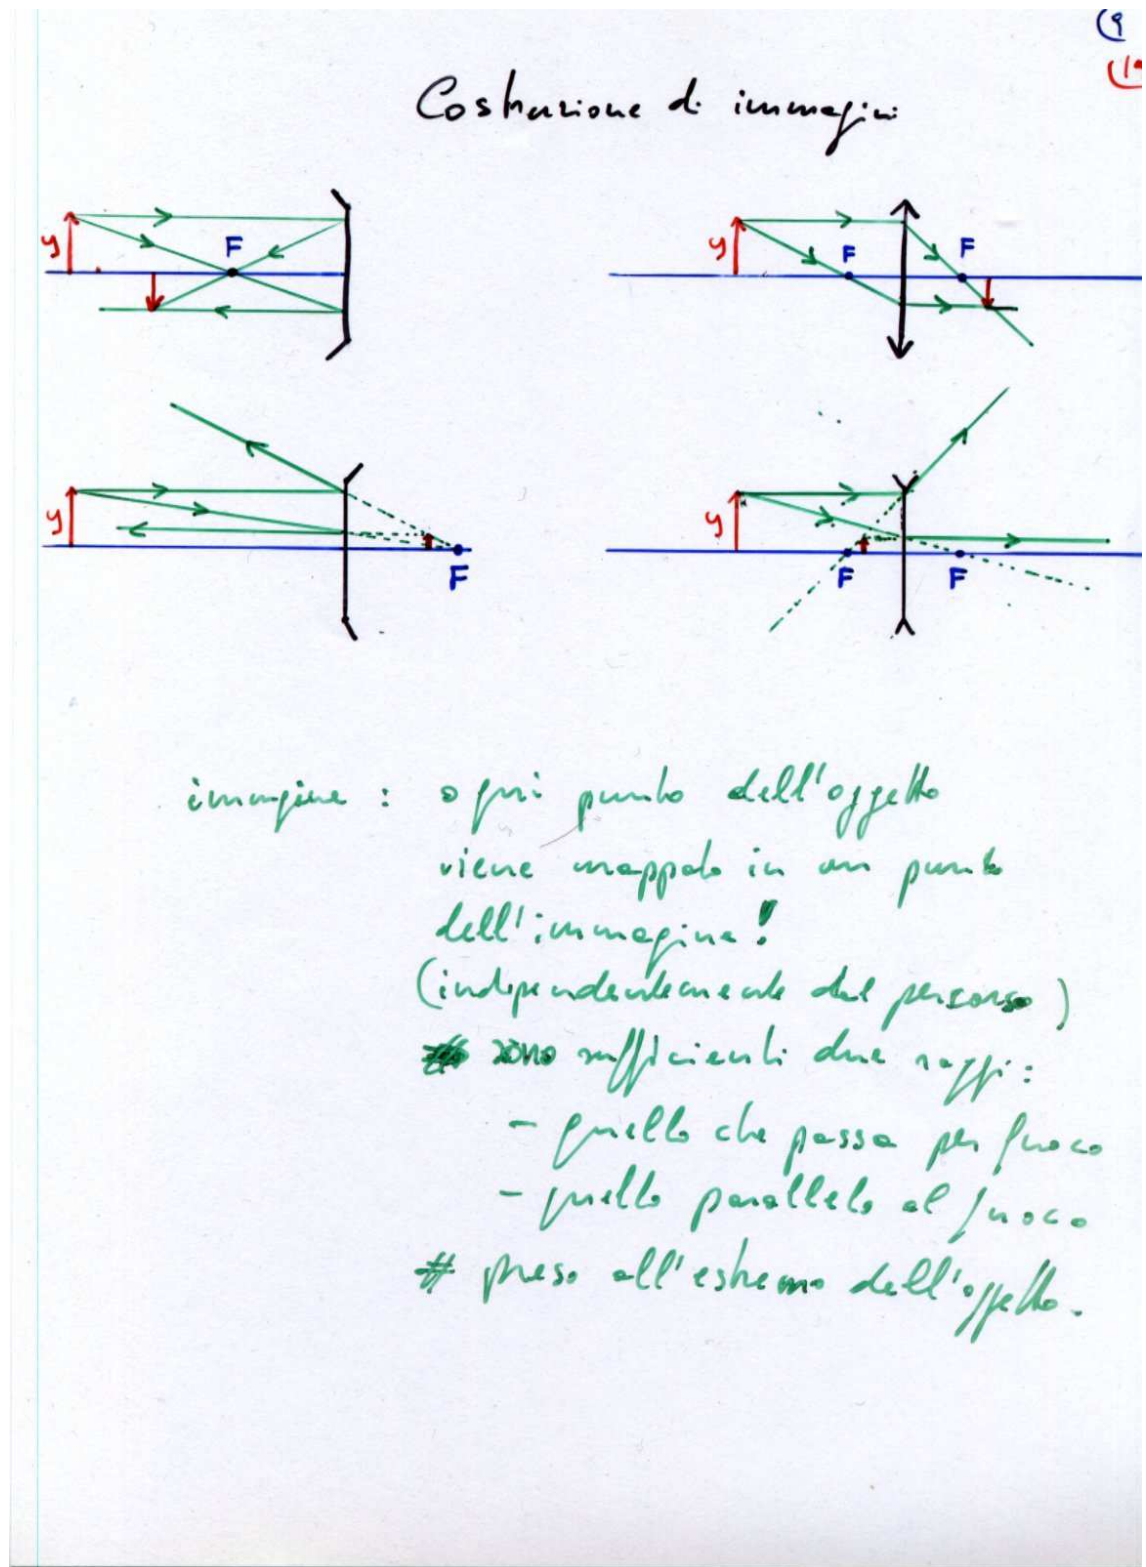 (9
(19
Costruzione di immagini
y F
y F F
y F
y F F
immagine : ogni punto dell'oggetto
viene mappato in un punto
dell'immagine!
(indipendentemente dal percorso)
sono sufficienti due raggi:
- quello che passa per fuoco
- quello parallelo al fuoco
# preso all'estremo dell'oggetto.